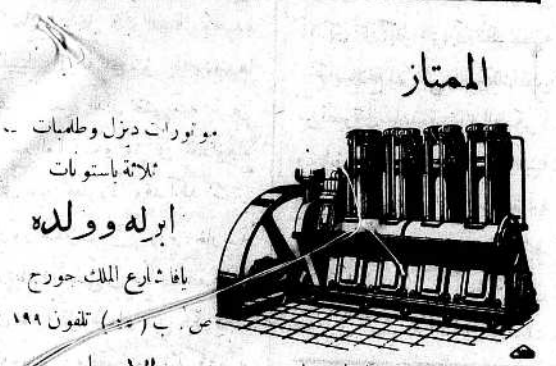 الممتاز
موتورات ديزل وطلمبات
ثلاثة باستونات
ابرله وولده
يافا شارع الملك جورج
ص. ب تلفون ١٩٩